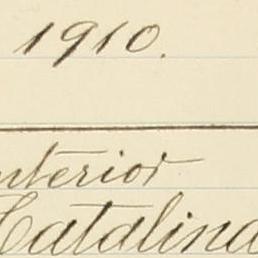 1910.
nterior
Catalina